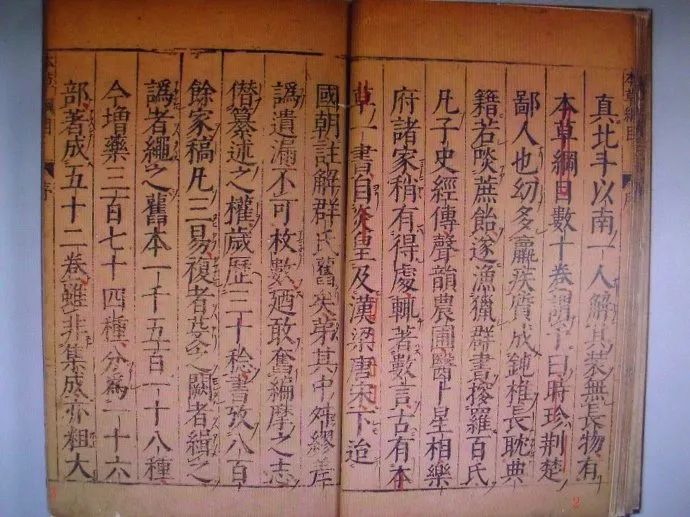 本草綱目
序
真北斗以南一人解其裝無長物有
本草綱目數十卷謂予曰時珍荆楚
鄙人也幼多羸疾質成鈍椎長耽典
籍若啖蔗飴遂漁獵群書搜羅百氏
凡子史經傳聲韻農圃醫卜星相樂
府諸家稍有得處輒著數言古有本
草一書自炎皇及漢梁唐宋下迨
國朝註解群氏舊矣第其中舛繆差
譌遺漏不可枚數廼敢奮編摩之志
僭纂述之權歲歷三十稔書攷八百
餘家稿凡三易複者芟之闕者緝之
譌者繩之舊本一千五百一十八種
今增藥三百七十四種分爲一十六
部著成五十二卷雖非集成亦粗大
本草綱目
序
2